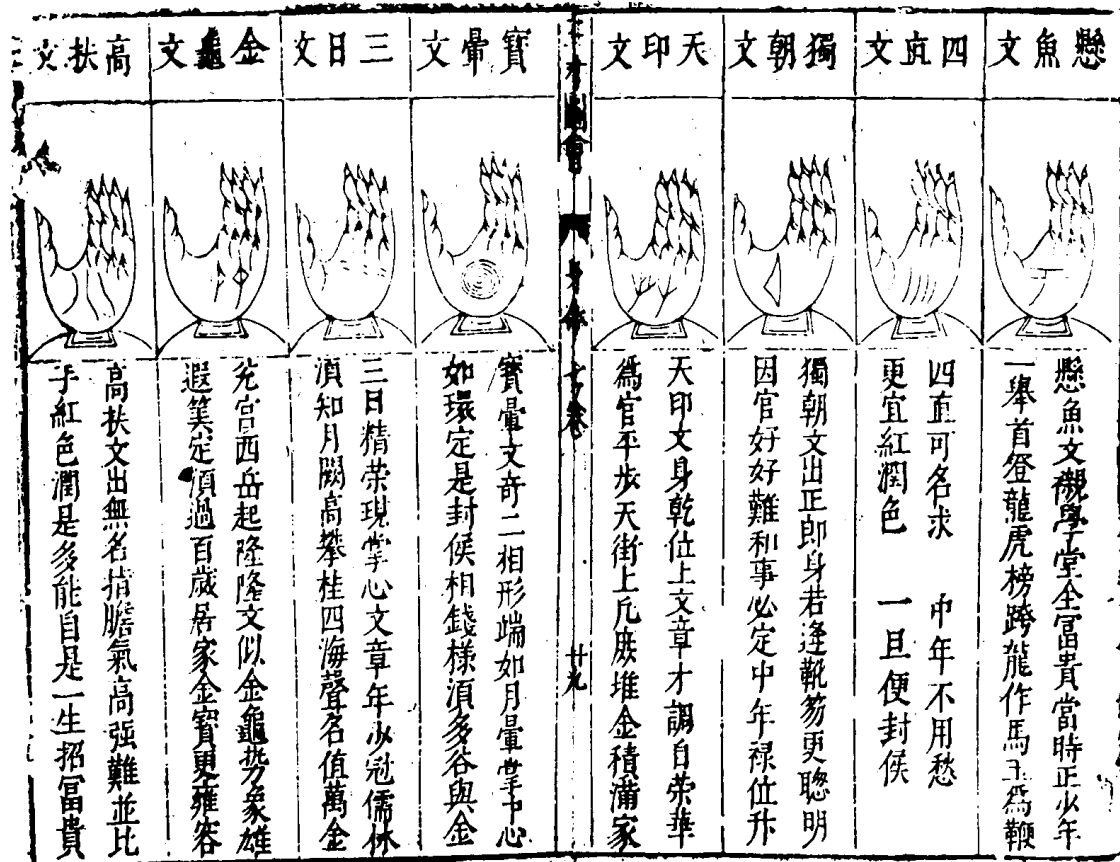 懸魚文
懸魚文襯學堂全富貴當時正少年
一舉首登龍虎榜跨龍作馬玉爲鞭
四直文
四直可名求　中年不用愁
更宜紅潤色　一旦便封侯
獨朝文
獨朝文出正郎身若逢靴笏更聰明
因官好好難和事必定中年禄位升
天印文
天印文身乾位上文章才調自荣華
爲官平步天街上凡庶堆金積滿家
三才圖會
身體七卷
廿九
寳暈文
寳暈文奇二相形端如月暈掌中心
如環定是封侯相錢様湏多谷與金
三日文
三日精荣現掌心文章年少冠儒林
湏知月闕高攀桂四海聲名值萬金
金龜文
兊宫西岳起隆隆文似金龜势象雄
遐筭定湏過百歲居家金寳更雍容
高扶文
高扶文出無名指膽氣高强難並比
手紅色潤是多能自是一生招富貴